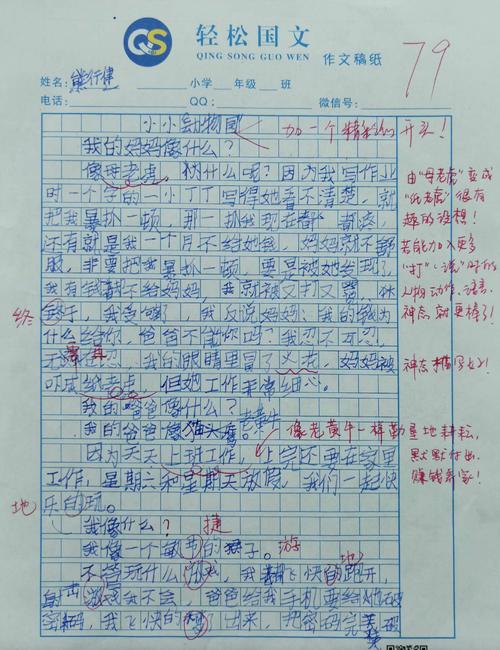 轻松国文
QING SONG GUO WEN
作文稿纸
79
姓名：熊行健 小学 年级 班
电话： QQ： 微信号：
小小动物园
加一个精彩的开头！
我的妈妈像什么？
像母老虎，为什么呢？因为我写作业
时一个字的一小丁丁写得她看不清楚，就
把我暴扒一顿，那一扒我现在都 都疼，
还有就是我一个月不给她钱，妈妈就不舒
服，非要把我暴扒一顿，要是被她发现了，
我有钱都不给妈妈，我就被又打又骂，
终于，我受够了，我反说妈妈：我的钱为
什么给你，爸爸不能做吗？我忍不可忍，
无 忍，我的眼睛里冒了火花，妈妈被
吓成纸老虎，但她工作非常细心。
我的爸爸像什么？
我的爸爸像猫头鹰。老黄牛
因为天天上班工作，上完还要在家里
工作，星期六和星期天放假，我们一起快
乐的玩。
我像什么？
我像一个敏 的猴子。
不管玩什么游戏，我都飞快的跑开，
射击游戏我不会，爸爸给我手机要给她破
密码，我飞快的 了出来，把密码完美破
由“母老虎”变成
“纸老虎”很有
趣的设想！
若能加入更多
“打”、“说”时的
人物动作、语言、
神态就更棒了！
神态描写女子！
像老黄牛一样勤垦地耕耘，
默默付出，
赚钱养家！
终
地
捷
游
地